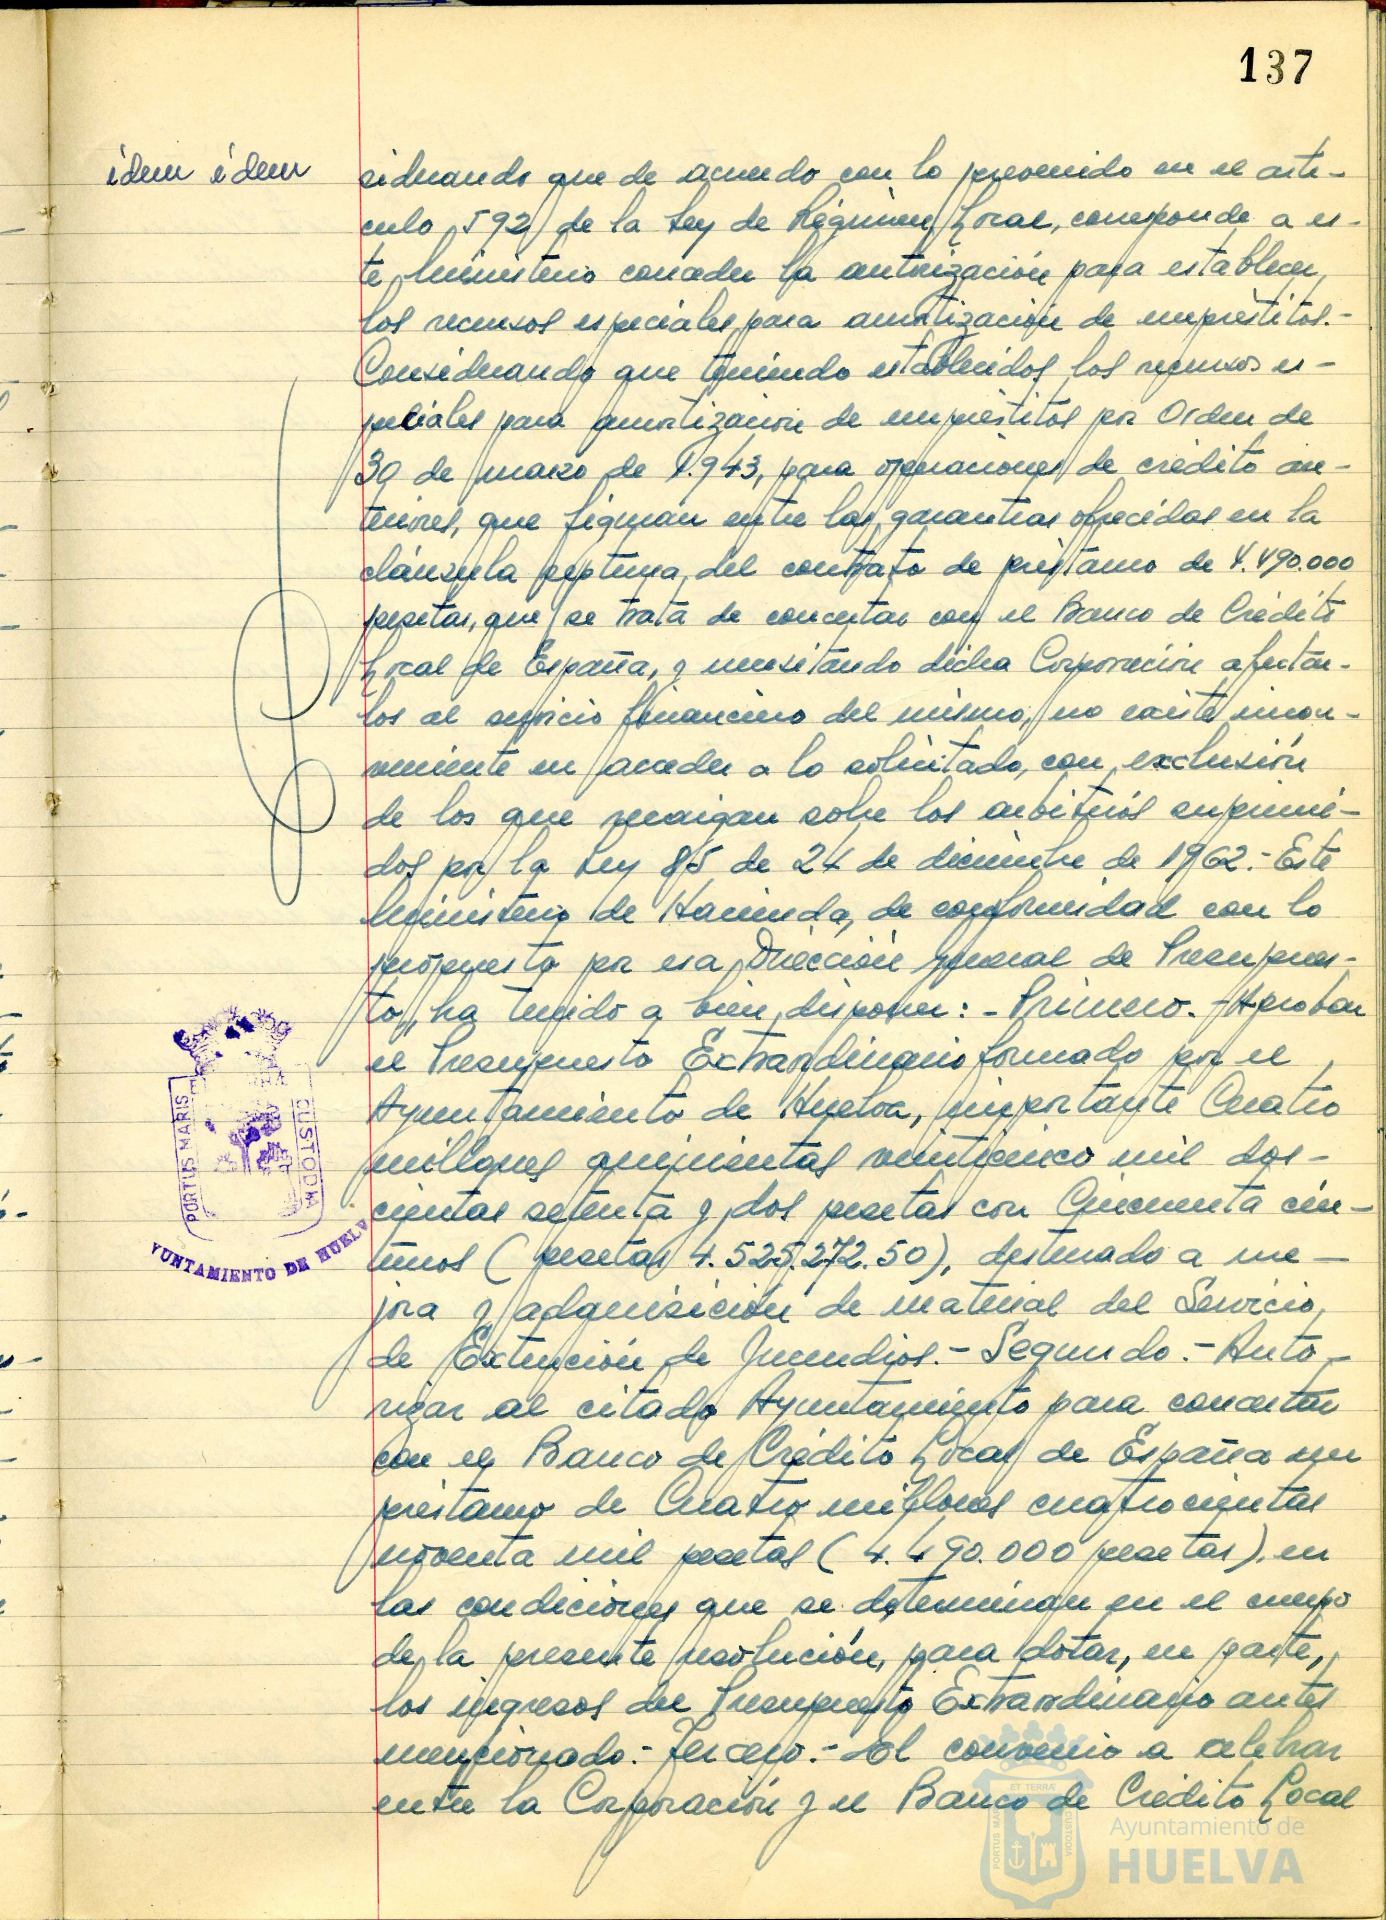 137
idem idem
siderando que de acuerdo con lo prevenido en el artí-
culo 592 de la Ley de Régimen Local, corresponde a es-
te Ministerio conceder la autorización para establecer
los recursos especiales para amortización de empréstitos.-
Considerando que teniendo establecidos los recursos es-
peciales para amortización de empréstitos por Orden de
30 de marzo de 1.943, para operaciones de crédito an-
teriores, que figuran entre las garantías ofrecidas en la
cláusula septima del contrato de préstamo de 4.490.000
pesetas, que se trata de concertar con el Banco de Crédito
Local de España, y necesitando dicha Corporación afectar-
los al servicio financiero del mismo, no existe incon-
veniente en acceder a lo solicitado, con exclusión
de los que recaigan sobre los arbitrios suprimi-
dos por la Ley 85 de 24 de diciembre de 1962.- Este
Ministerio de Hacienda, de conformidad con lo
propuesto por esa Dirección general de Presupues-
to, ha tenido a bien disponer: - Primero. - Aprobar
el Presupuesto Extraordinario formado por el
Ayuntamiento de Huelva, importante Cuatro
millones quinientas veinticinco mil dos-
cientas setenta y dos pesetas con Cincuenta cén-
timos (pesetas 4.525.272.50), destinado a me-
jora y adquisición de material del Servicio
de Extinción de Incendios.- Segundo.- Auto-
rizar al citado Ayuntamiento para concertar
con el Banco de Crédito Local de España un
préstamo de Cuatro millones cuatrocientas
noventa mil pesetas (4.490.000 pesetas), en
las condiciones que se determinan en el cuerpo
de la presente resolución, para dotar, en parte,
los ingresos del Presupuesto Extraordinario antes
mencionado.- Tercero.- El convenio a celebrar
entre la Corporación y el Banco de Crédito Local
PORTUS MARIS
CUSTODIA
YUNTAMIENTO DE HUELV
ET TERRAE
PORTUS MARIS
CUSTODIA
Ayuntamiento de
HUELVA